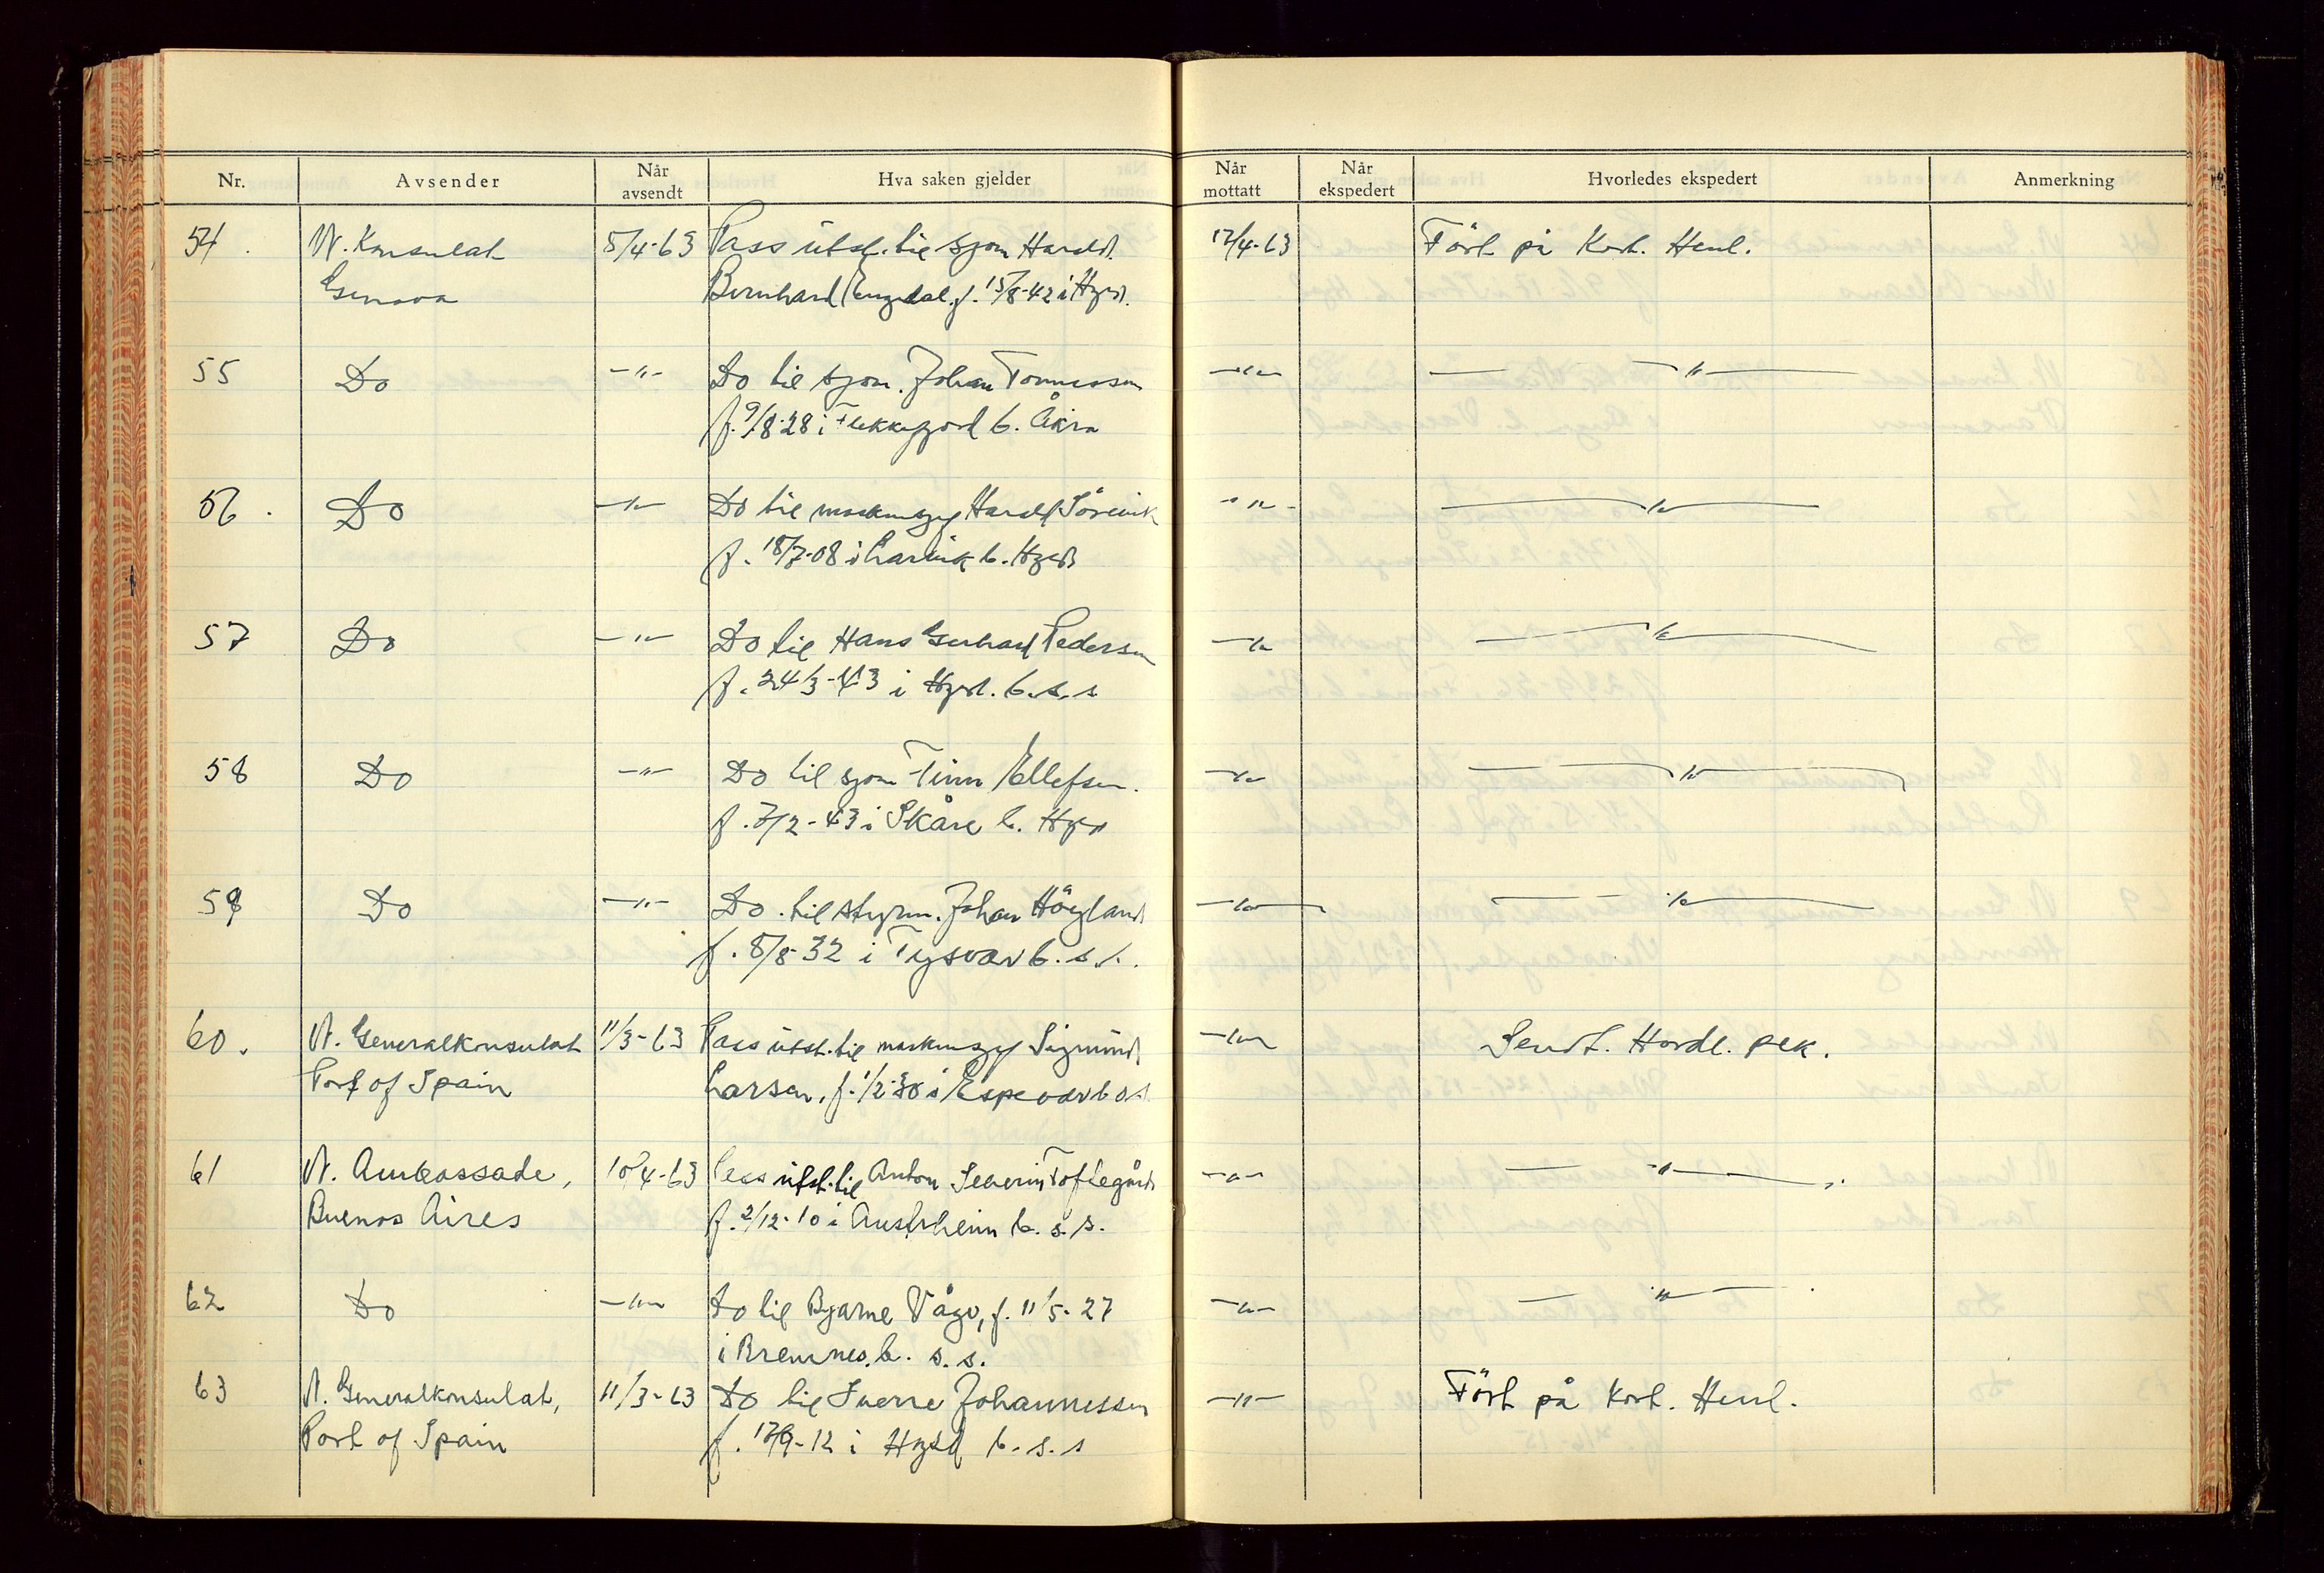 Nr. Avsender Når avsendt Hva saken gjelder Når mottatt Når ekspedert Hvorledes ekspedert Anmerkning
54. N. Konsulat 5/4-63 Pass utst. til sjøm Harald 17/4-63 Ført på Kort. Henl.
Genova Bernhard Engdal, f. 15/8-42 i Hgsd.
55 Do -"- Do til sjøm. Johan Tønnessen -"- -"-
f. 9/8-28 i Flekkefjord b. Åkra
56. Do -"- Do til maskinsjef Harald -"- -"-
f. 18/7-08 i Larvik b. Hgsd
57 Do -"- Do til Hans Gerhard Pedersen -"- -"-
f. 24/3-43 i Hgsd. b.s.s
58 Do -"- Do til sjøm Finn Ellefsen. -"- -"-
f. 7/2-43 i Skåre b. Hgsd
59 Do -"- Do. til styrm. Johan Høgland -"- -"-
f. 8/8-32 i Tysvær b.s.s.
60. N. Generalkonsulat 11/3-63 Pass utst. til maskinsjef Sigmund -"- Sendt. Hordl. pek.
Port of Spain Larsen, f. 1/2-30 i Espevær b.s.s.
61 N. Ambassade, 10/4-63 Pass utst. til Anton Severin Toftegård -"- -"-
Buenos Aires f. 2/12-10 i Austrheim b. s. s.
62 Do -"- Do til Bjarne Vågø, f. 11/5-27 -"- -"-
i Bremnes. b. s. s.
63 N. Generalkonsulat, 11/3-63 Do til Sverre Johannessen -"- Ført på Kort. Henl.
Port of Spain f. 17/9-12 i Hgsd b.s.s